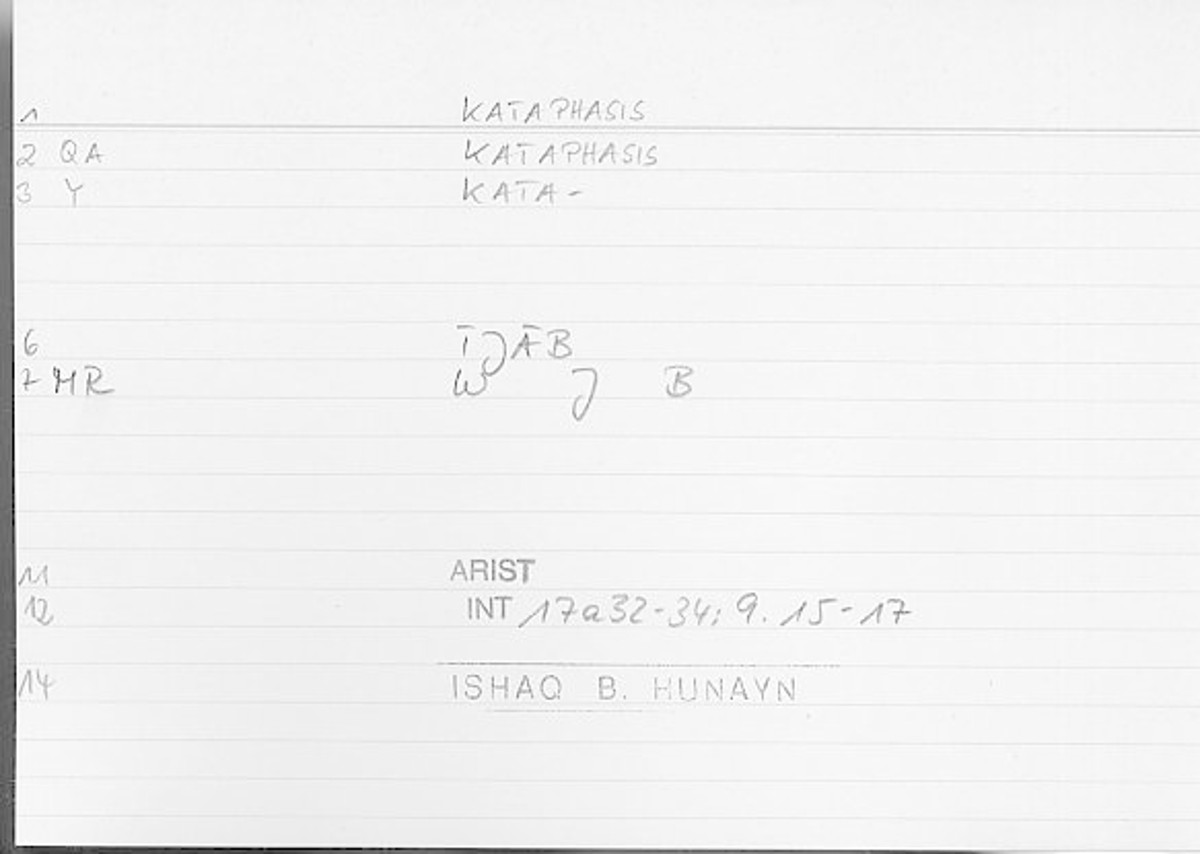 1 KATAPHASIS
2 QA KATAPHASIS
3 Y KATA-
6 ĪJĀB
7 MR W J B
11 ARIST
12 INT 17a32-34; 9. 15-17
14 ISHAQ B. HUNAYN